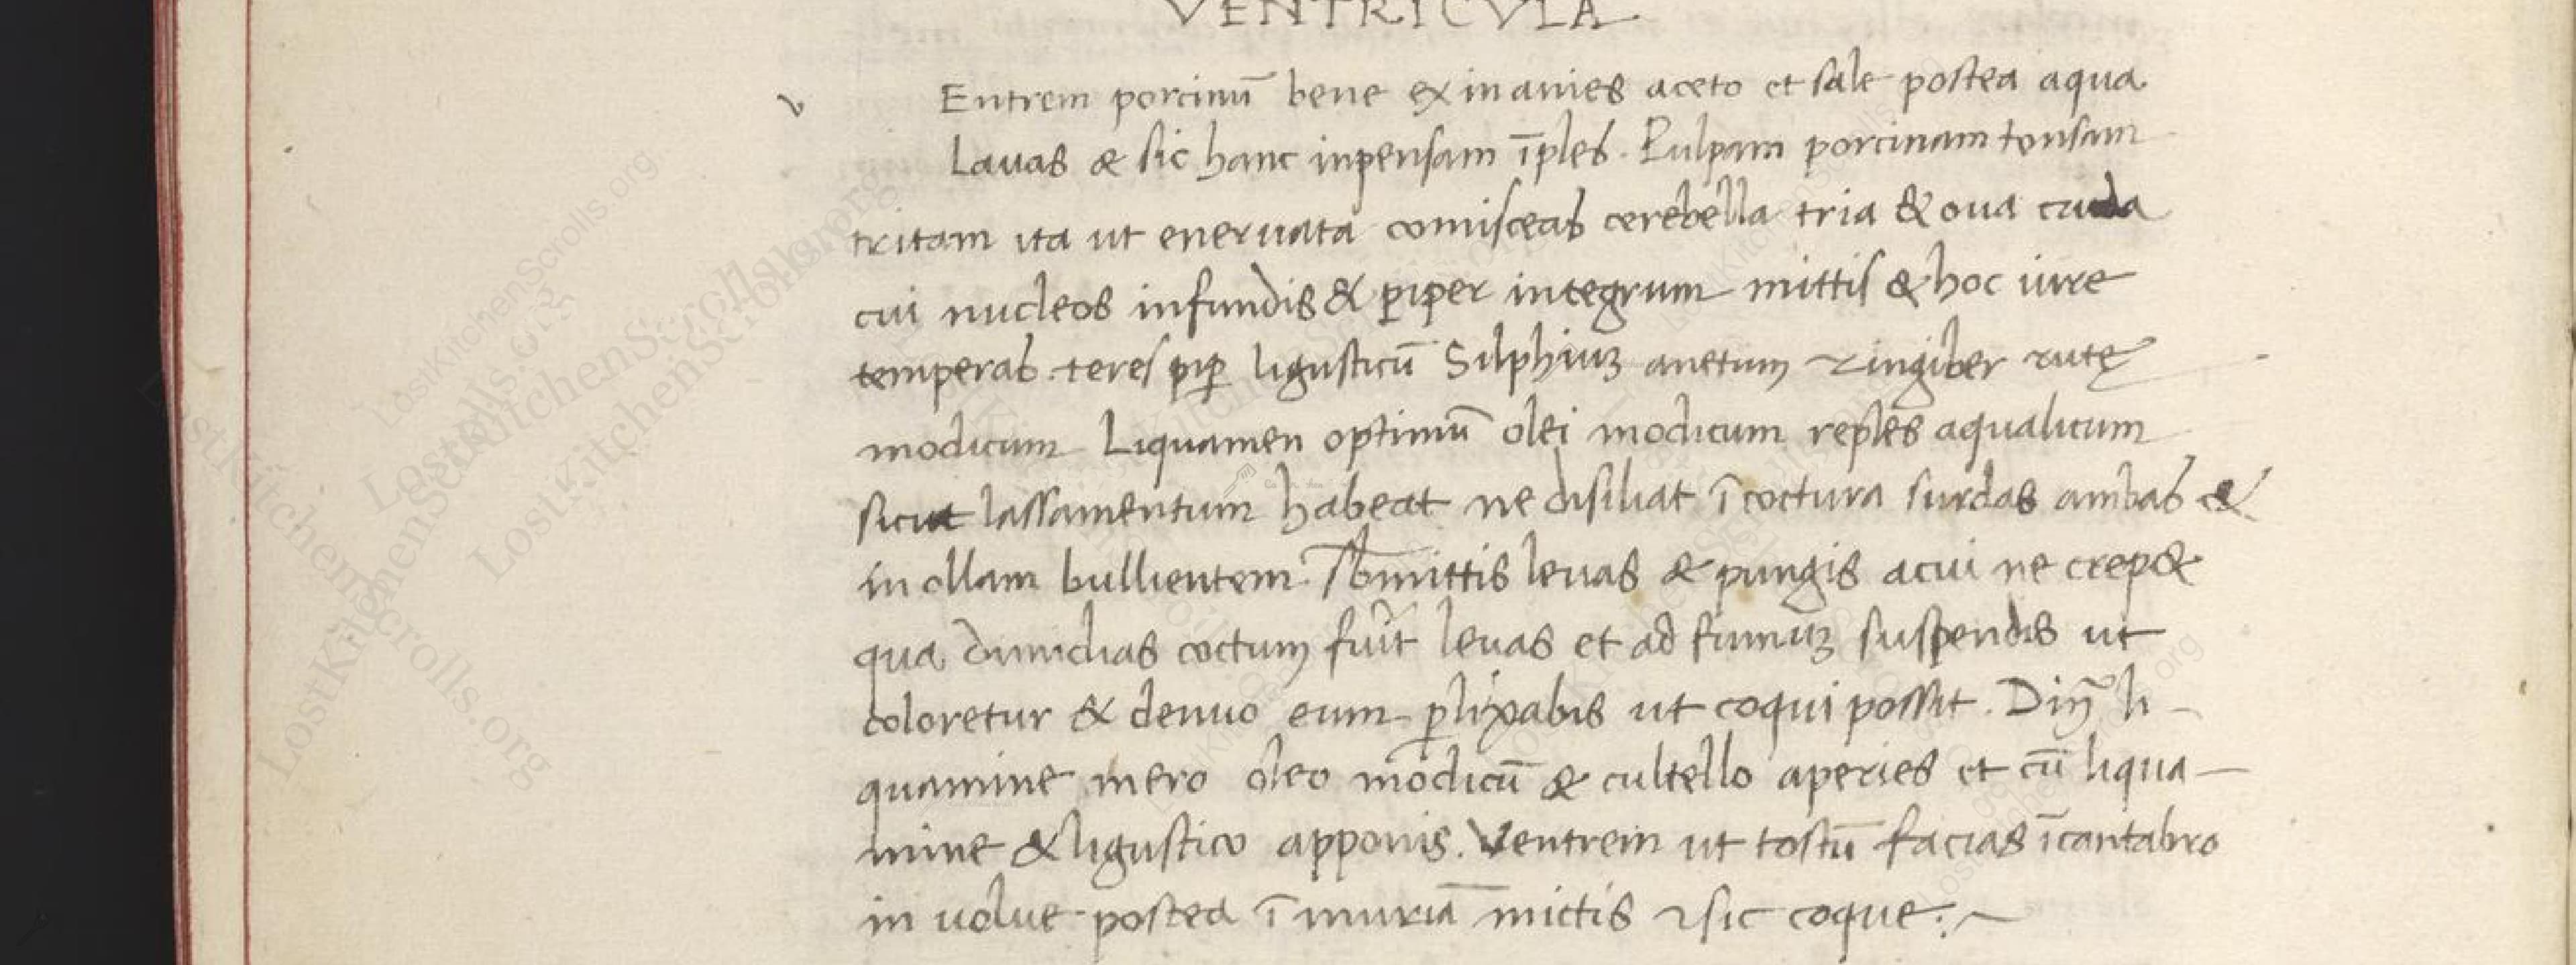 VENTRICVLA
v Entrem porcinū bene exinanies aceto et sale postea aqua
Lauas & sic hanc inpensam īples. Pulpam porcinam tonsam
tritam ita ut eneruata comisceas cerebella tria & oua cruda
cui nucleos infundis & piper integrum mittis & hoc iure
temperas. teres pip̄ ligusticū Silphiuꝫ anetum zingiber rutę
modicum Liquamen optimū olei modicum reples aqualicum
sicut lassamentum habeat ne disiliat ī coctura surdas ambas &
in ollam bullientem. Sbmittis leuas & pungis acui ne crep&
qua dimidias coctum fuīt leuas et ad fumuꝫ suspendis ut
coloretur & denuo eum ꝑlixabis ut coqui possit. Diñ li-
quamine mero oleo modicū & cultello aperies et cū liqua-
mine & ligustico apponis. Ventrem ut tostū facias ī cantabro
in uolue postea ī muriā mittis & sic coque:~
LostKitchenScrolls.org